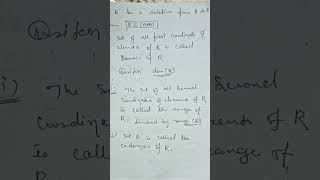 R be a relation from A to B
R ⊆ (A×B)
Set of all first coordinate of
elements of R is called
Domain of R
dom (R)
The set of all Second
Coordinates of elements of R
is called the range of
R. denoted by range (R)
Set B is called the
codomain of R.
i) The
Coordina
is calle
R
Second
ents of R
range of